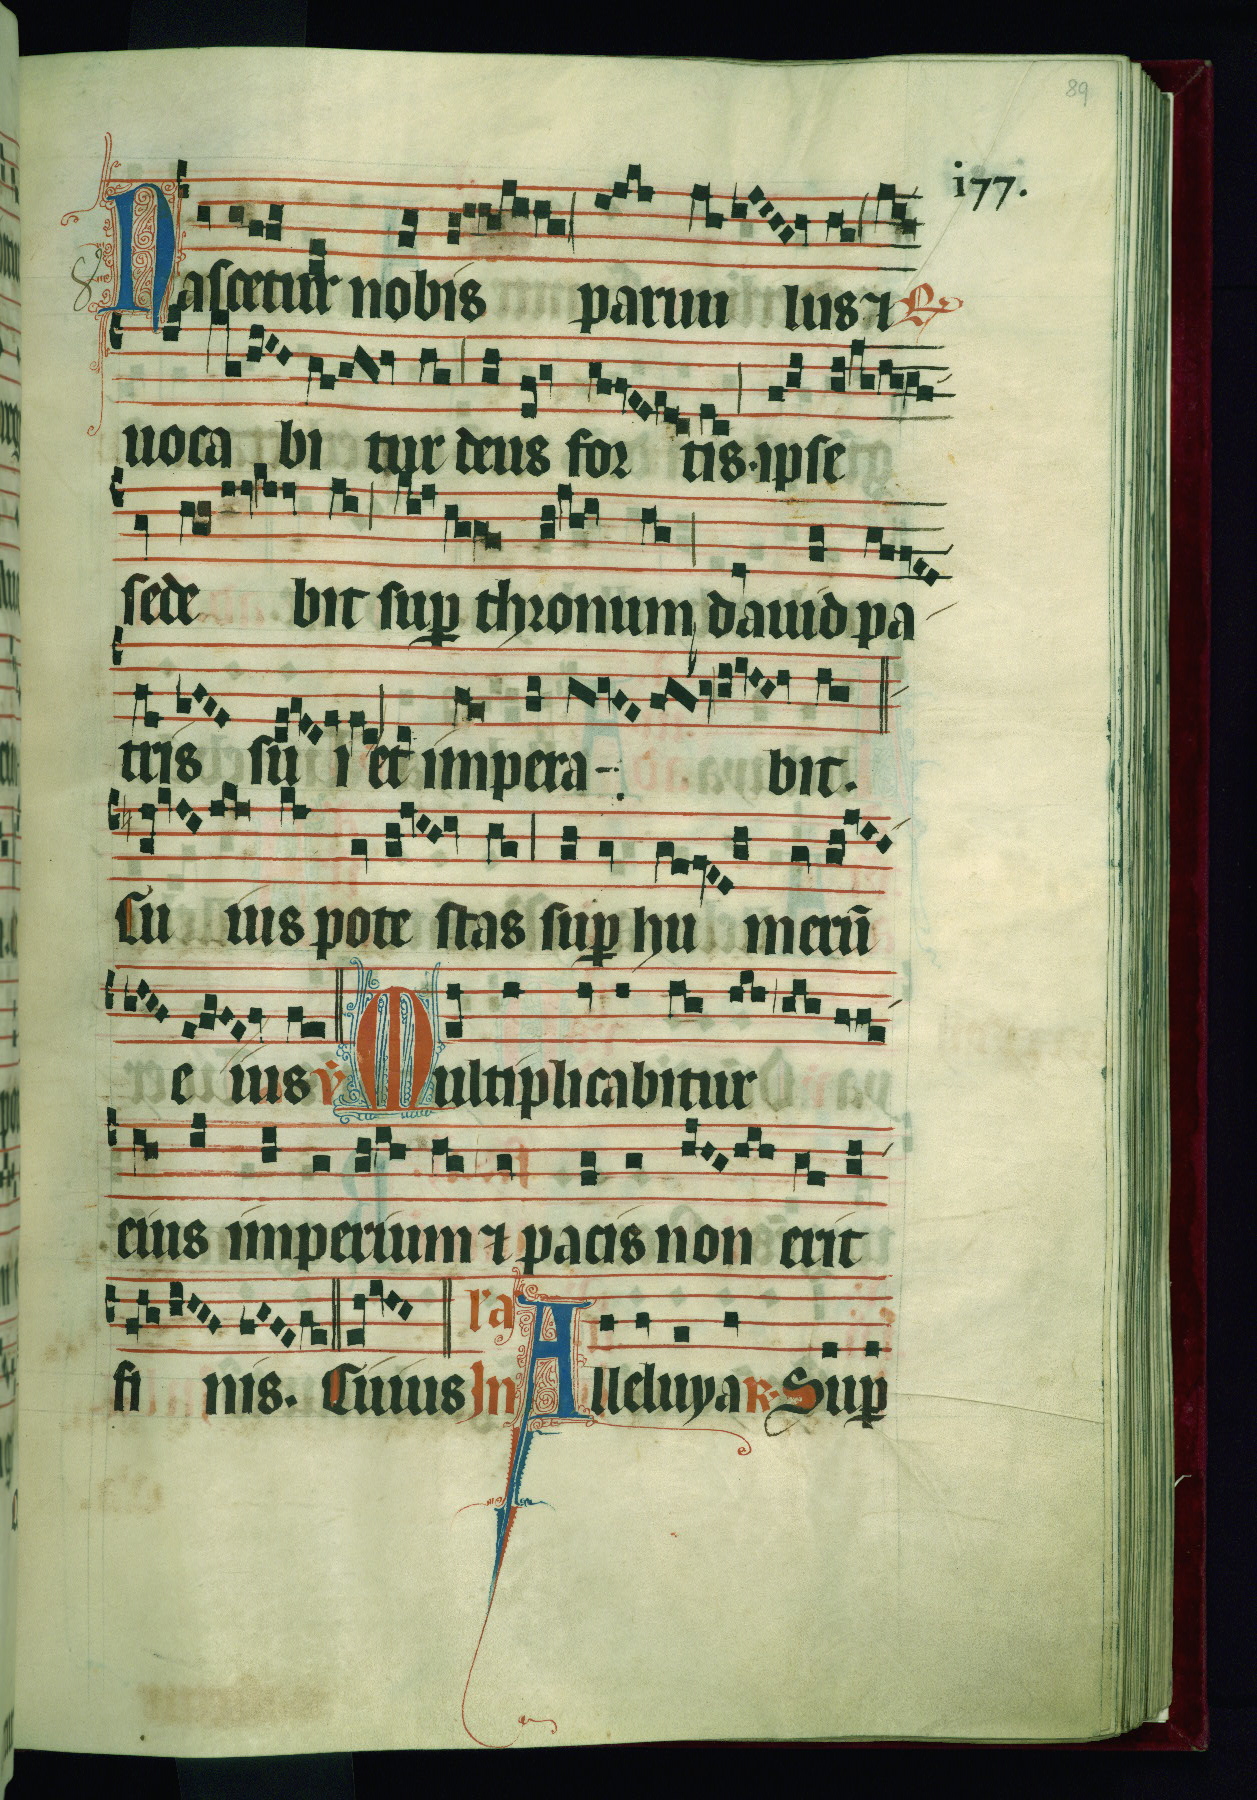 89
177.
8
Nascetur nobis paruu lus ⁊ R̷
uoca bi tur deus for tis. ipse
sede bit suꝑ thronum dauid pa
tris su i et impera- bit.
Cu ius pote stas suꝑ hu merū
e ius v̷ Multiplicabitur
eius imperium ⁊ pacis non erit
ra
fi nis. Cuius In Alleluya R. Suꝑ